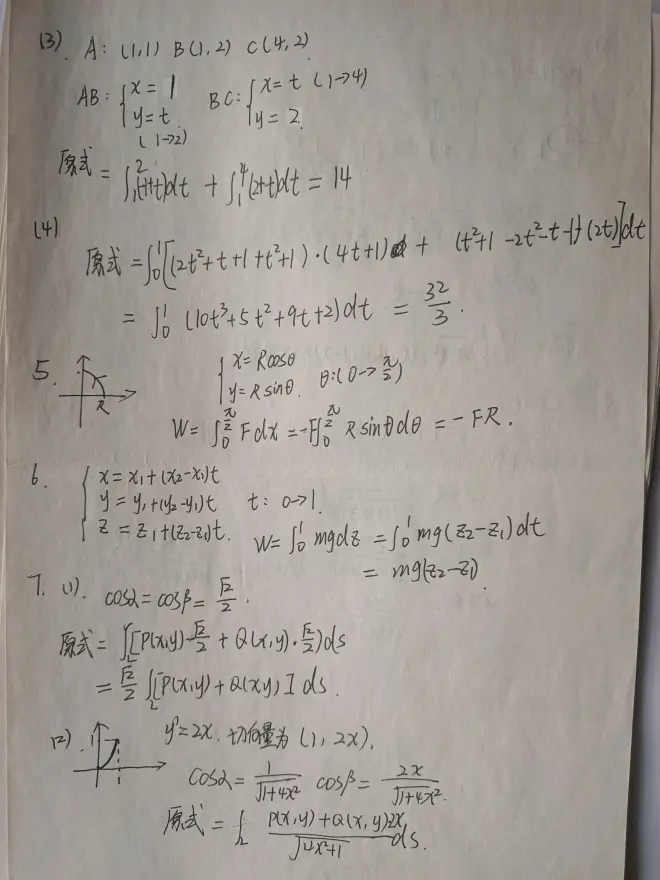 (3). A: (1,1) B(1,2) C(4,2)
AB: { x = 1 BC: { x = t (1→4)
y = t y = 2.
(1→2)
原式 = ∫₁²(-1+t)dt + ∫₁⁴(2+t)dt = 14
(4)
原式 = ∫₀¹[(2t²+t+1+t²+1)·(4t+1) + (t²+1-2t²-t-1)·(2t)]dt
= ∫₀¹ (10t³+5t²+9t+2)dt = 32/3.
5. { x = Rcosθ
y = Rsinθ. θ:(0→π/2)
R
W = ∫₀^(π/2) Fdx = -F∫₀^(π/2) R sinθdθ = -FR.
6. { x = x₁+(x₂-x₁)t
y = y₁+(y₂-y₁)t t: 0→1.
z = z₁+(z₂-z₁)t. W = ∫₀¹ mgdz = ∫₀¹ mg(z₂-z₁)dt
= mg(z₂-z₁)
7. (1). cosα = cosβ = √2/2.
原式 = ∫_L[P(x,y)·√2/2 + Q(x,y)·√2/2)ds
= √2/2 ∫_L[P(x,y)+Q(x,y)]ds.
(2). 1 y' = 2x. 切向量为 (1, 2x).
cosα = 1/√(1+4x²) cosβ = 2x/√(1+4x²).
原式 = ∫_L (P(x,y)+Q(x,y)2x)/√(4x²+1) ds.